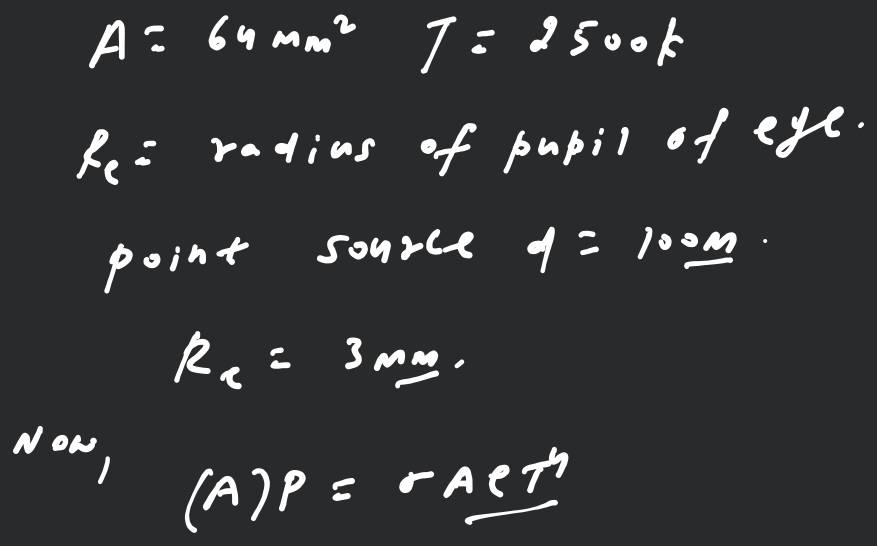 A = 64 mm² T = 2500k
Re = radius of pupil of eye.
point source d = 100m.
Re = 3 mm.
Now,
(A) P = σAeT⁴